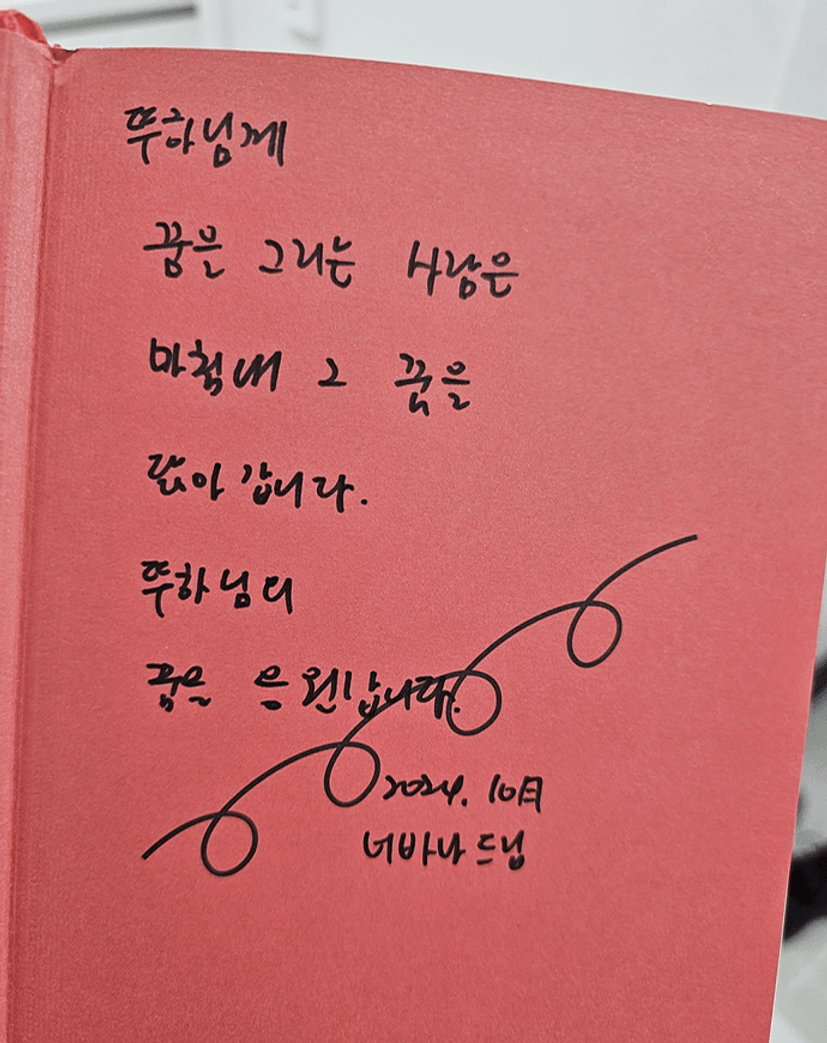 뚜하님께
꿈을 그리는 사람은
마침내 그 꿈을
닮아 갑니다.
뚜하님의
꿈을 응원합니다.
2024. 10月
너바나 드림